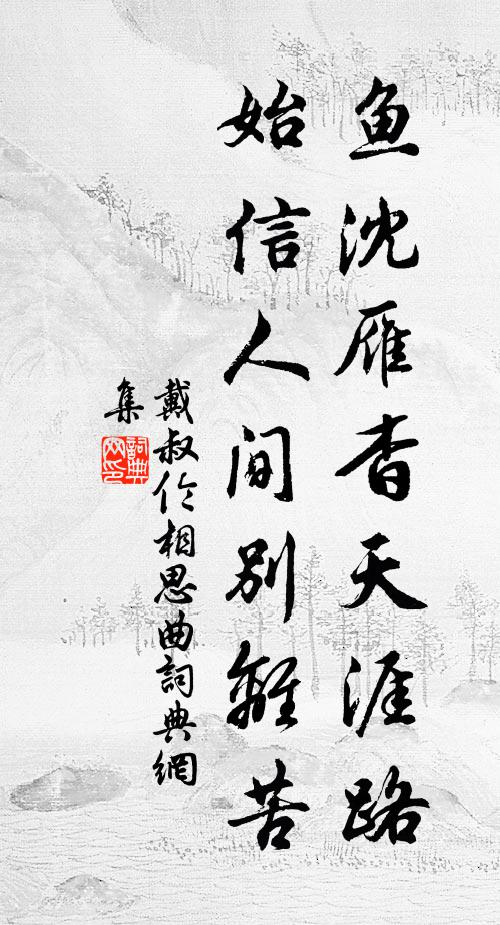 鱼沈雁杳天涯路
始信人间别離苦
戴叔伦相思曲詞典網
集
詞典
网印